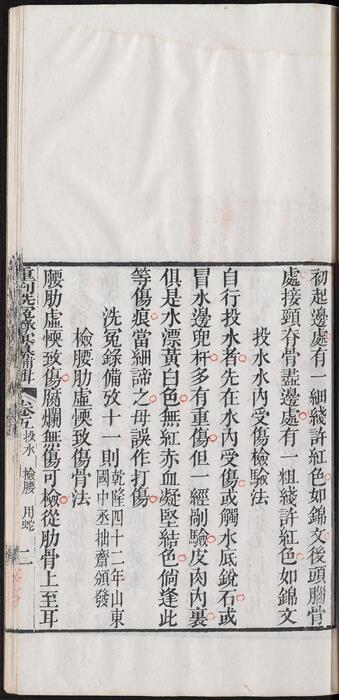 初起邊處有一細綫許紅色如錦文後頭腦骨
處接頸脊骨盡邊處有一粗綫許紅色如錦文
投水水內受傷檢驗法
自行投水者先在水內受傷或觸水底銳石或
冒水邊兜杆多有重傷但一經剐驗皮肉內裏
俱是水漂黃白色無紅赤血凝堅結色倘逢此
等傷痕當細諦之毋誤作打傷
洗冤錄備攷十一則
乾隆四十二年山東
國中丞拙齋頒發
檢腰肋虛愞致傷骨法
腰肋虛愞致傷腐爛無傷可檢從肋骨上至耳
重刊洗冤錄
卷五 投水 檢腰 用蛇 二